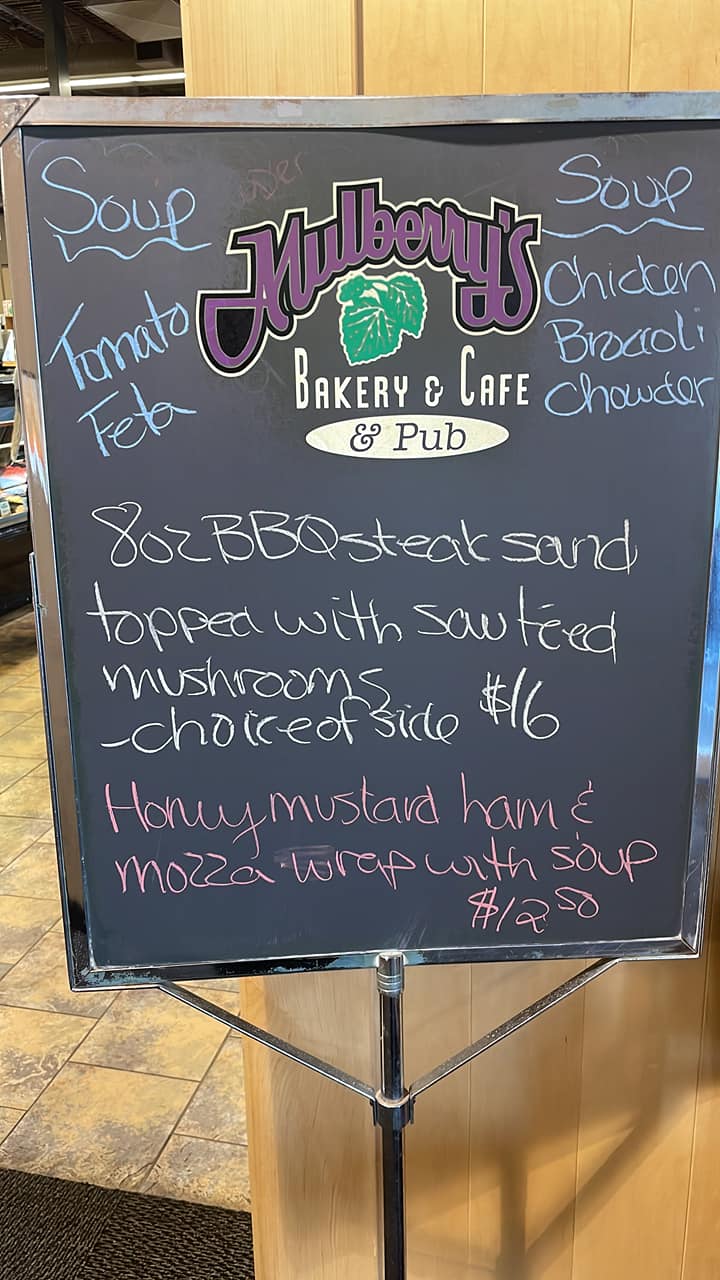 Soup
Tomato
Feta
Mulberry's
BAKERY & CAFE
& Pub
Soup
Chicken
Broccoli
Chowder
8oz BBQ steak sand
topped with sautéed
mushrooms
-choice of side $16
Honey mustard ham &
mozza wrap with soup
$12 50